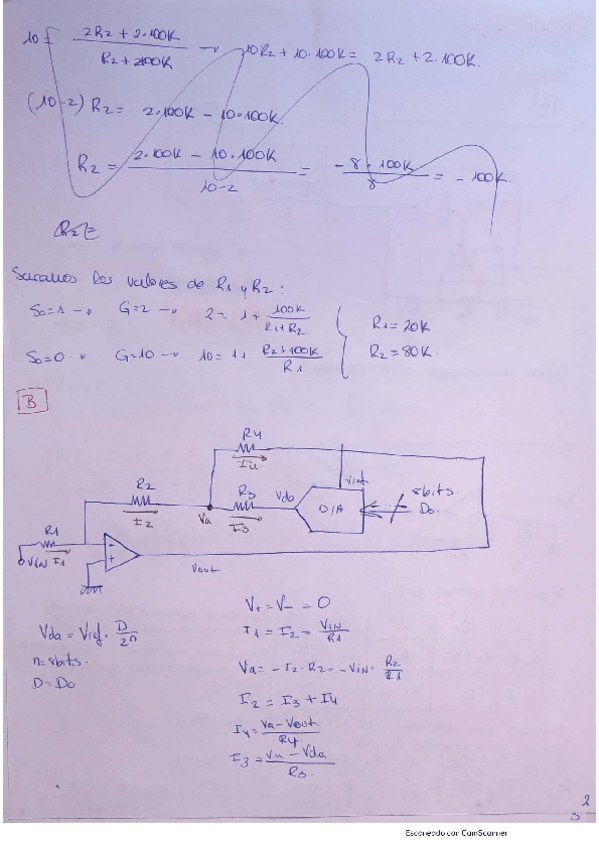 10 = (2R2 + 2·100K)/(R2 + 2100K) → 10R2 + 10·100K = 2R2 + 2·100K.
(10-2) R2 = 2·100K - 10·100K.
R2 = (2·100K - 10·100K)/(10-2) = (-8·100K)/8 = -100K.
R2=
Sacamos los valores de R1 y R2:
S0=1 → G=2 → 2 = 1 + 100K/(R1+R2)
R1=20K
S0=0 → G=10 → 10 = 1 + (R2+100K)/R1
R2=80K.
B
R4
I4
R2
I2
Va
R3
I3
Vda
D/A
Vref
8bits.
Do.
R1
Vin I1
-
+
Vout
V+ = V- = 0
Vda = Vref · D/2n
I1 = I2 = Vin/R1
n=8bits.
Va = -I2·R2 = -Vin · R2/R1
D=Do
I2 = I3 + I4
I4 = (Va - Vout)/R4
I3 = (Va - Vda)/R3.
2
Escaneado con CamScanner